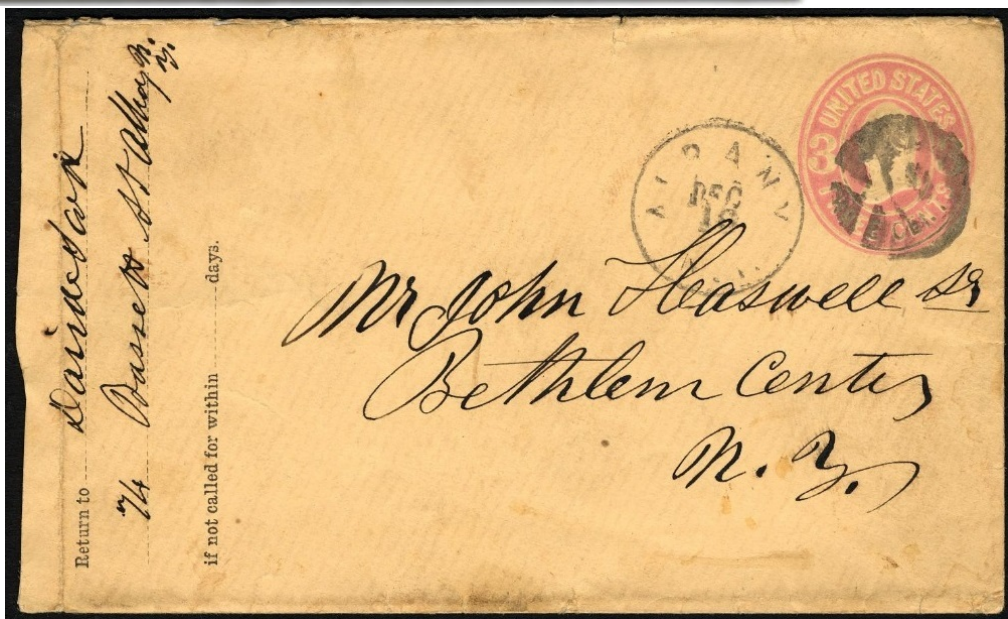 Return to
74 Bassett St Albany N. Y.
if not called for within days.
ALBANY
DEC
18
N.Y.
UNITED STATES
3
CENTS
Mr John Haswell Sr
Bethlem Center
N. Y.